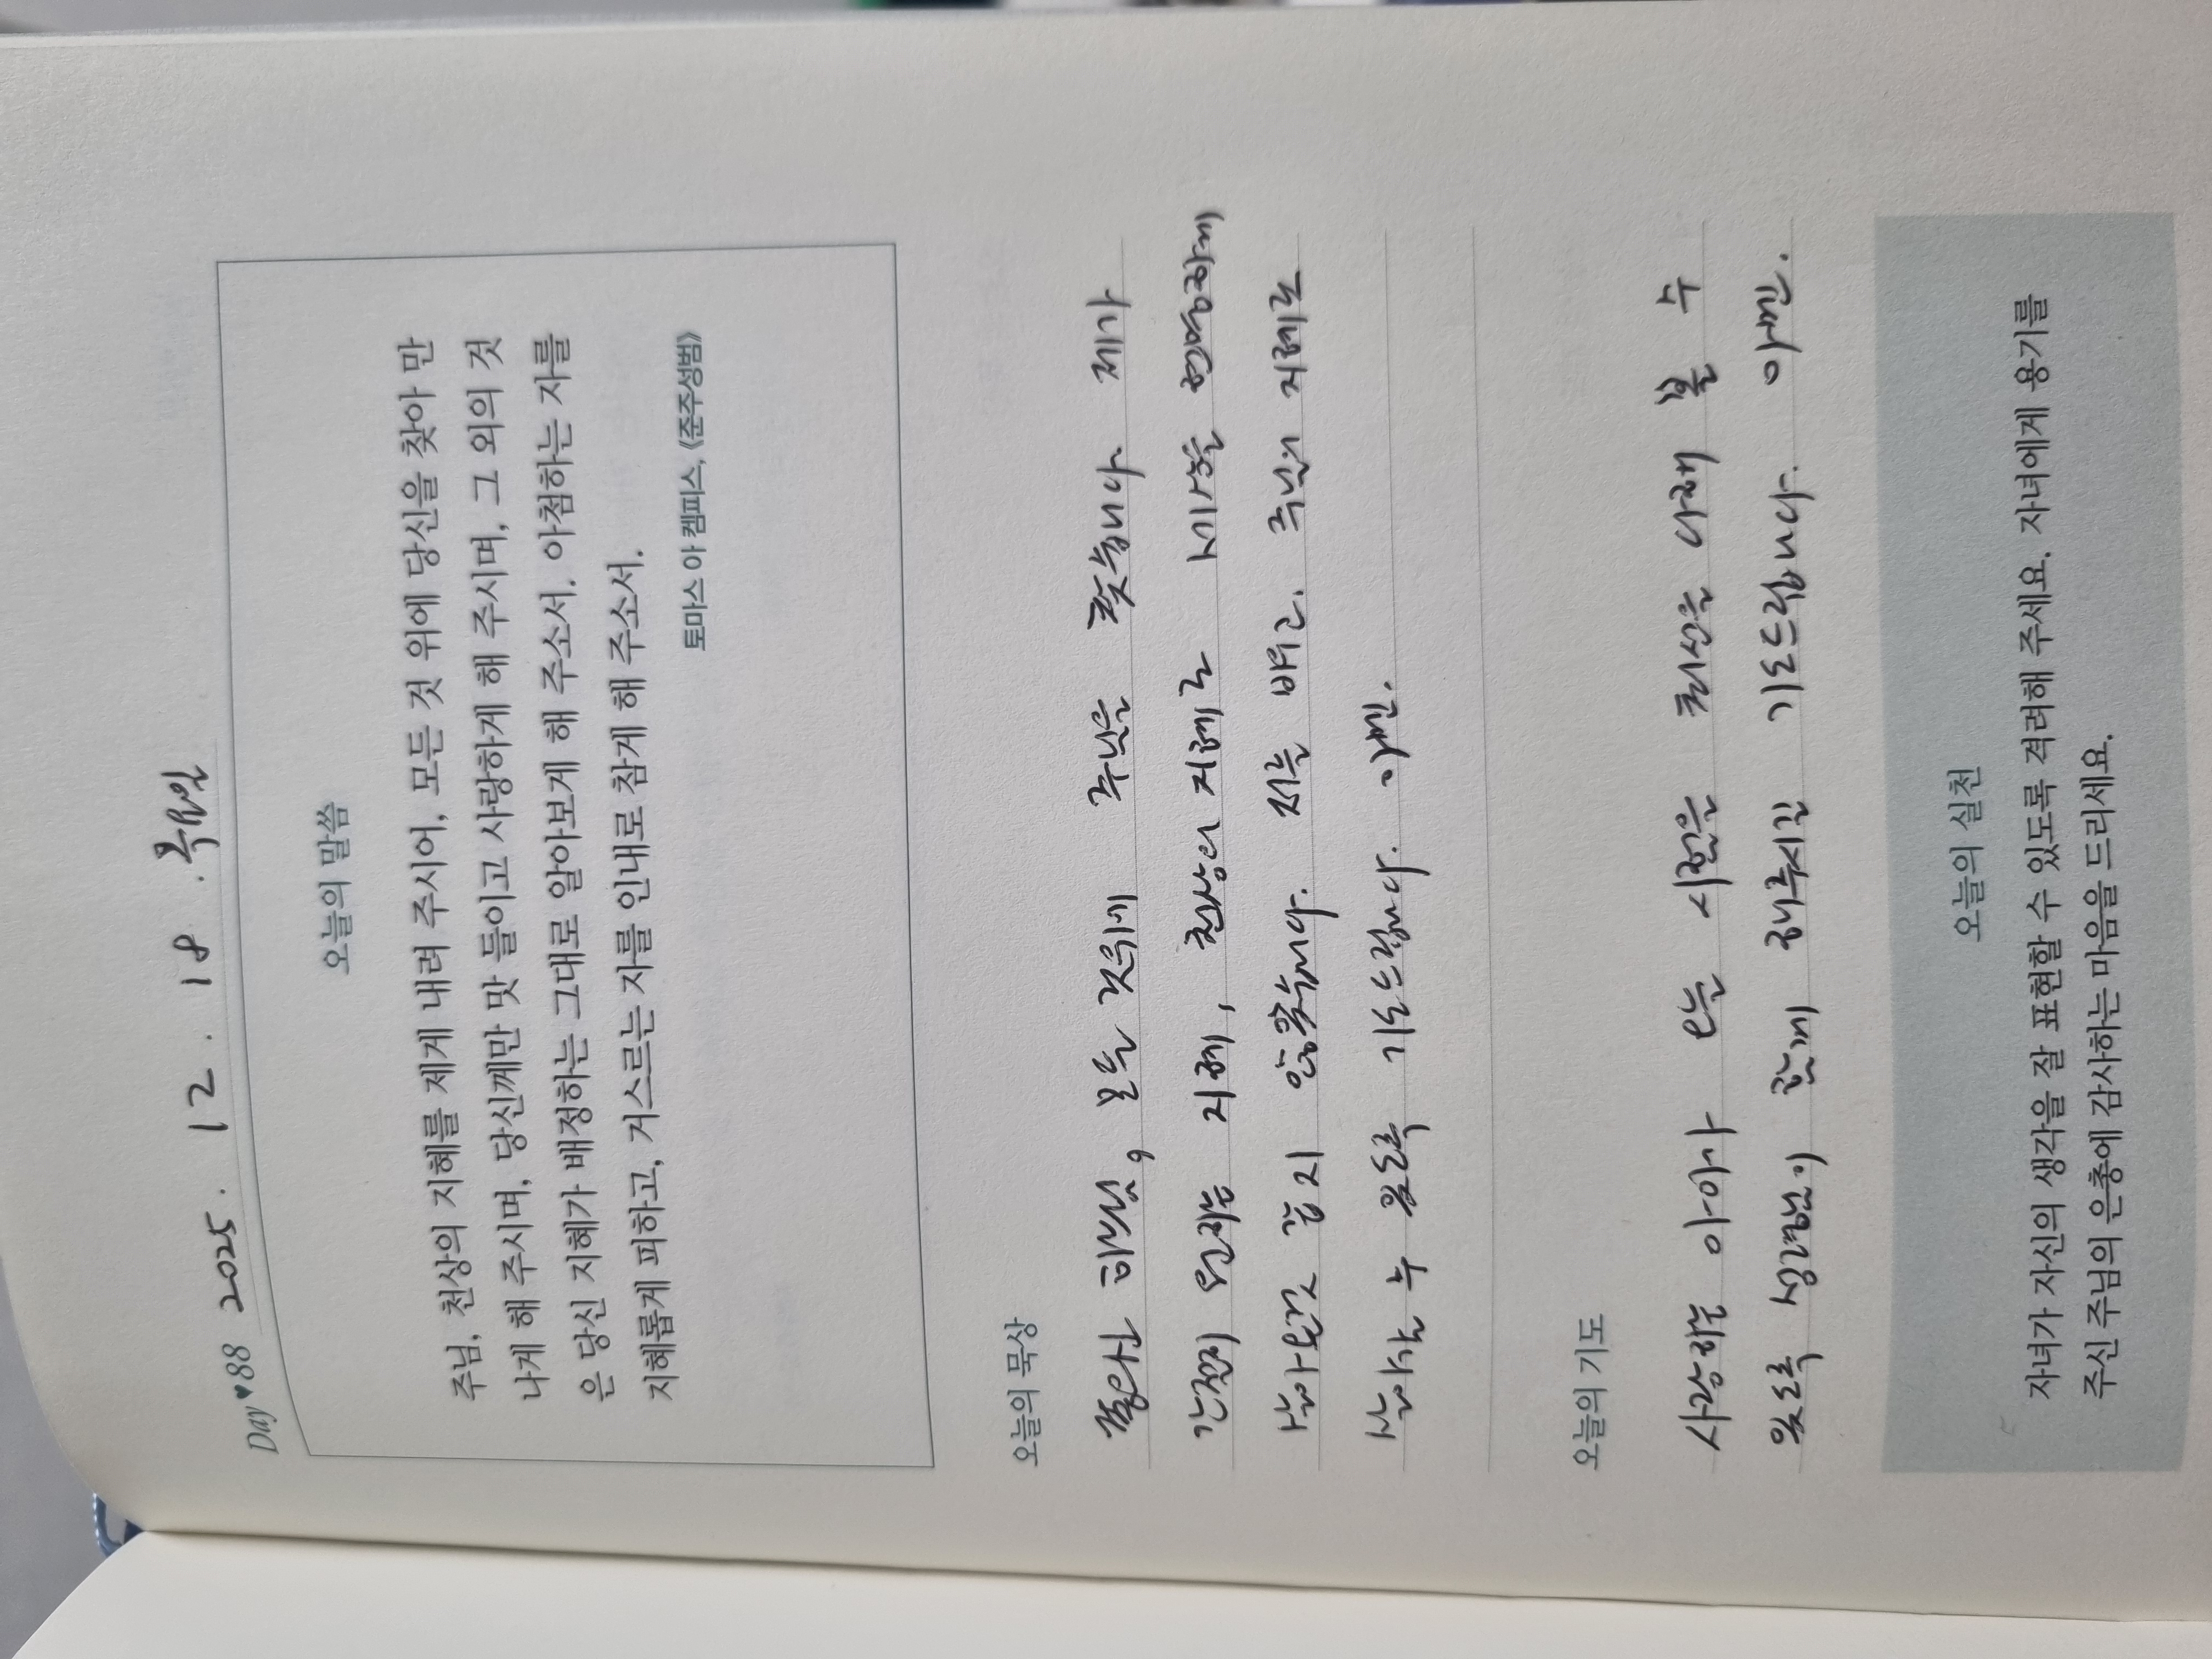 Day ♥ 88 2025. 12. 18. 목요일
오늘의 말씀
주님, 천상의 지혜를 제게 내려 주시어, 모든 것 위에 당신을 찾아 만
나게 해 주시며, 당신께만 맛 들이고 사랑하게 해 주시며, 그 외의 것
은 당신 지혜가 배정하는 그대로 알아보게 해 주소서. 아첨하는 자를
지혜롭게 피하고, 거스르는 자를 인내로 참게 해 주소서.
토마스 아 켐피스, 《준주성범》
오늘의 묵상
좋으신 하느님, 모든 것 위에 주님을 찾습니다. 제가
간절히 원하는 지혜, 천상의 지혜로 세상을 현명하게
살아 갈 주님의 지혜로
살아가는 수 있도록 기도드립니다. 아멘.
오늘의 기도
사랑하는 아이가 오는 시험을 최선을 다해 볼 수
있도록 성령님이 함께 해주시길 기도드립니다. 아멘.
오늘의 실천
자녀가 자신의 생각을 잘 표현할 수 있도록 격려해 주세요. 자녀에게 용기를
주신 주님의 은총에 감사하는 마음을 드리세요.